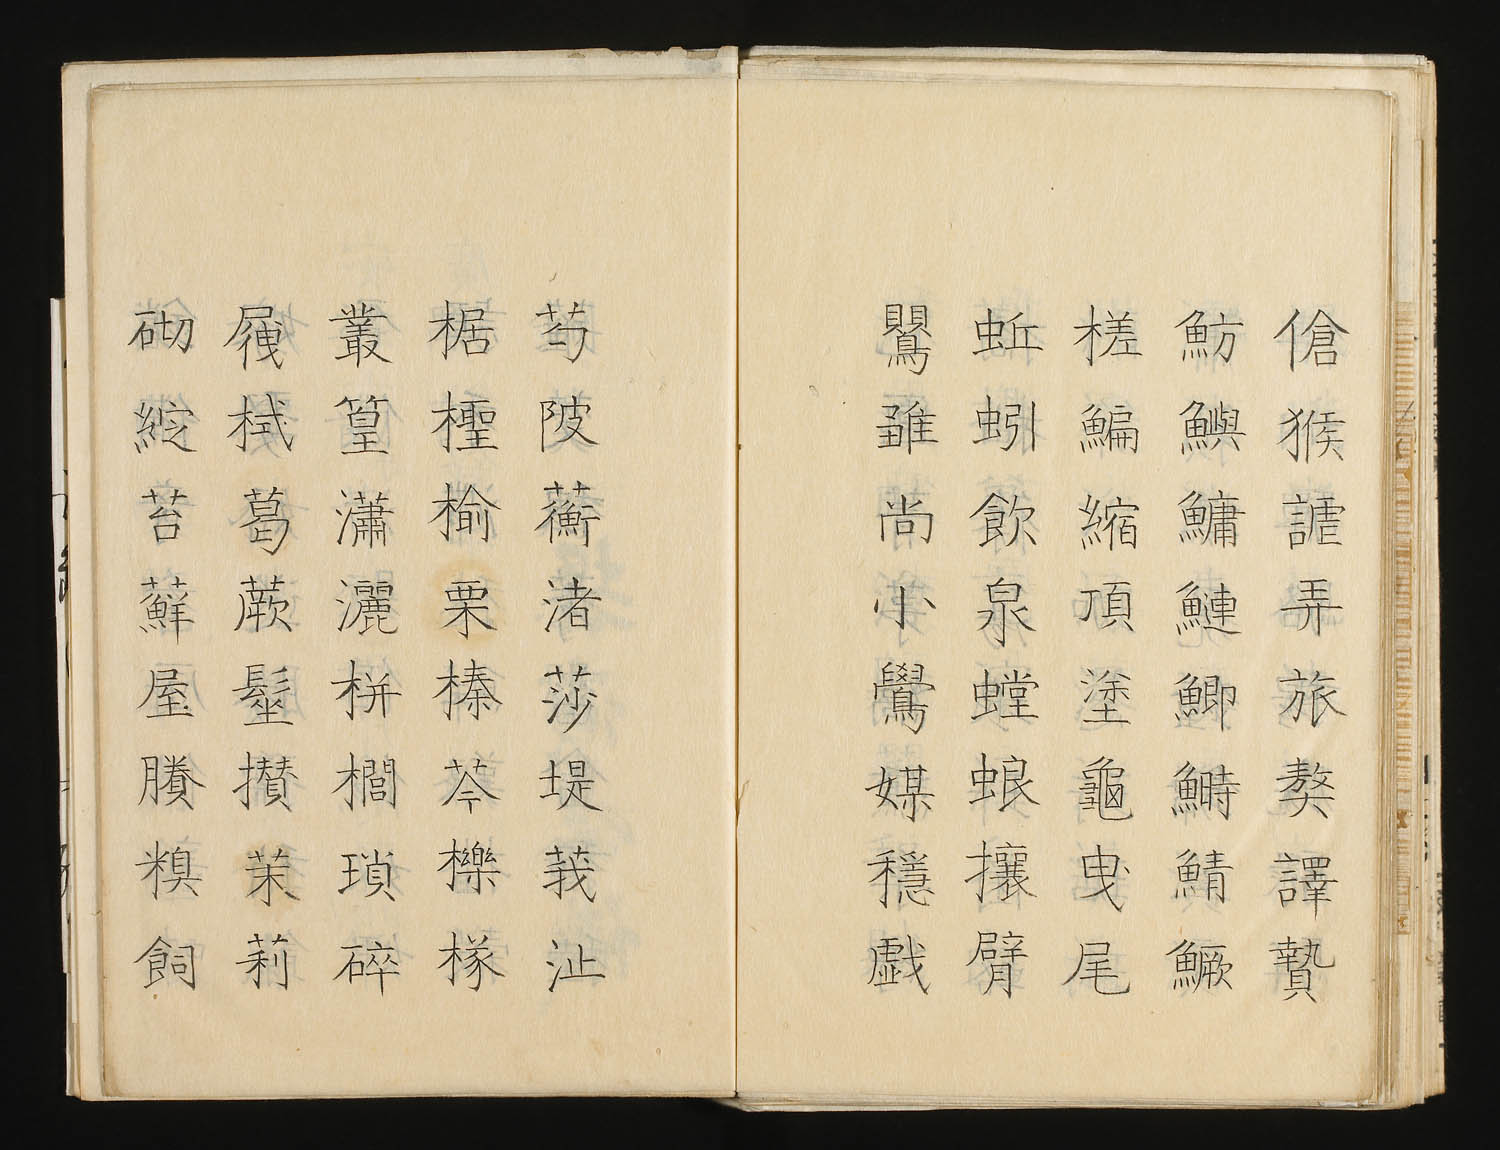 傖猴謔弄旅獒譯贄
魴鱮鱅鰱鯽鰣鯖鱖
槎鯿縮項塗龜曳尾
蚯蚓飲泉螳蜋攘臂
鷃雖尚小鷽媒穩戯
芍陂蘅渚莎堤莪沚
椐檉榆栗榛芩櫟檖
叢篁瀟灑栟櫚瑣碎
屐栻葛蕨髽攢茉莉
砌綻苔蘚屋賸糗飼